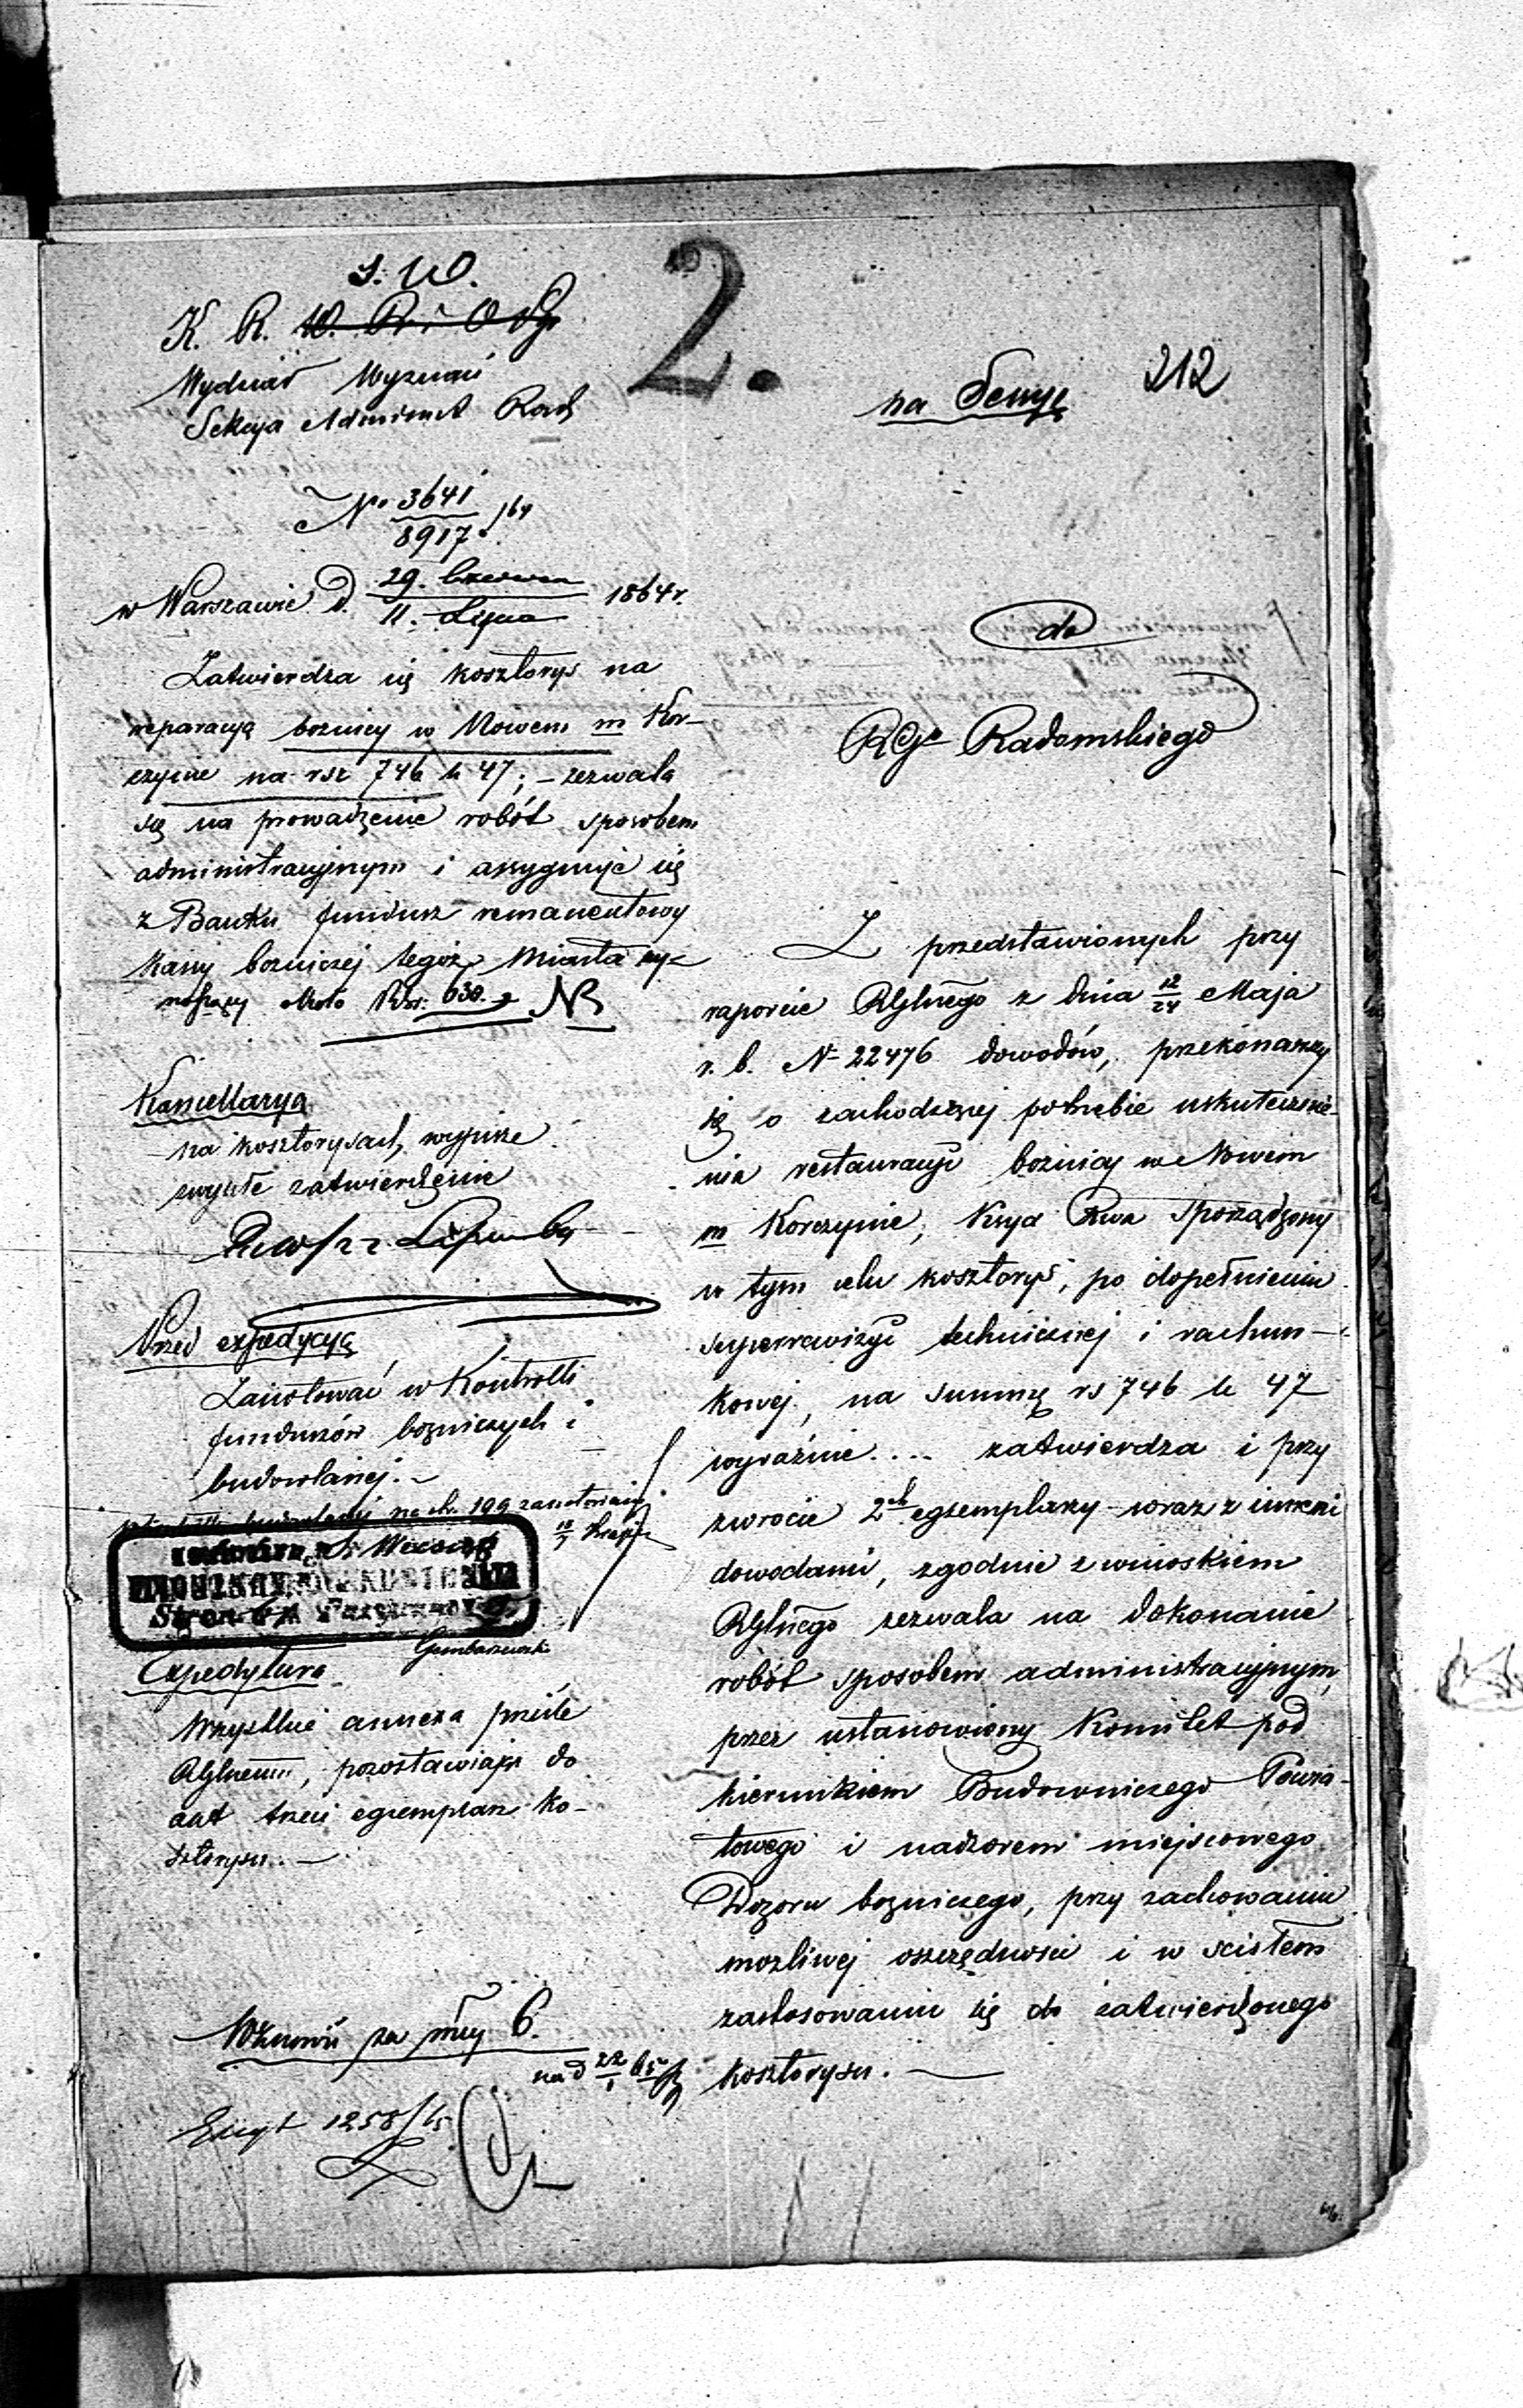 S. W.
K. R. W. R. i O P
Wydział Wyznań
Sekcja Administ
2.
na Sessyę
212
No 3641/8917 /64
w Warszawie d. 29. Czerwca / 11. Lipca 1864 r.
Zatwierdza się kosztorys na
reparacyą bożnicy w Nowem m Kor-
czynie na rsr 746 k 47; – zezwala
się na prowadzenie robót sposobem
administracyjnym i assygnuje się
z Banku fundusz remanentowy
kassy bożniczej tegoż Miasta wy-
noszący około Rsr. 630.
Kancellarya
na kosztorysach, wypisze
zwykłe zatwierdzenie
Przed expedycyą
Zanotować w Kontrolli
funduszów bożniczych i
budowlanej. –
na st. 199 zanotowano
Expedytura
Wszystkie annexa prześle
RGlnemu, pozostawiając do
akt trzeci egzemplarz ko-
sztorysu. –
Wznowić za mcy 6.
na d 22/1 65
1258/65
do
RGo Radomskiego
Z przedstawionych przy
raporcie RGlnego z dnia 12/24 Maja
r. b. N 22476 dowodów, przekonawszy
się o zachodzącej potrzebie uskutecznie-
nia restauracyi bożnicy w Nowem
m Korczynie, Kssya Rwa sporządzony
w tym celu kosztorys, po dopełnieniu
superrewizyi technicznej i rachun-
kowej, na summę rs 746 k 47
wyraźnie.... zatwierdza i przy
zwrocie 2ch egzemplarzy wraz z innemi
dowodami, zgodnie z wnioskiem
RGlnego zezwala na dokonanie
robót sposobem administracyjnym,
przez ustanowiony Komitet pod
kierunkiem Budowniczego Powia-
towego i nadzorem miejscowego
Dozoru bożniczego, przy zachowaniu
możliwej oszczędności i w scisłem
zastosowaniu się do zatwierdzonego
kosztorysu. —